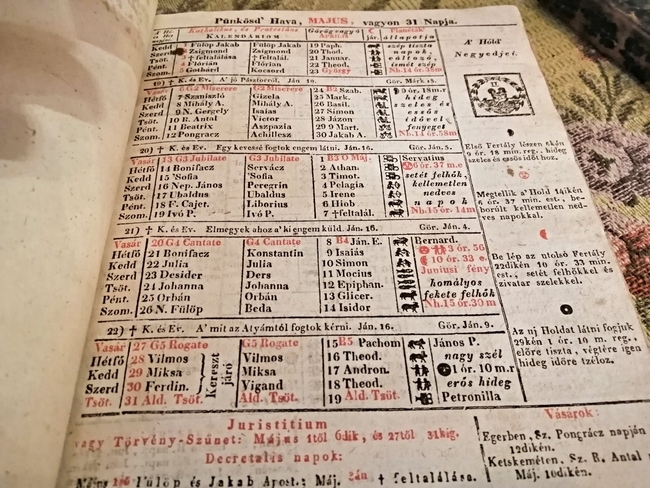 Pünkösd' Hava, MAJUS, vagyon 31 Napja.
Katholikus, és Protestáns
KALENDÁRIOM
Görög nagy
Április
Planéták
jár. állapotja
A' Hóld'
Negyedjei.
Kedd 1 Fülöp Jakab Fülöp Jakab 19 Paph. szép tiszta
Szerd 2 Zsigmond Zsigmond 20 Thod. napok,
Tsöt. 3 † feltalálása † feltalál. 21 Januar. változó,
Pént. 4 Flórián Flórian 22 Theod. ismét szép
Szom. 5 Gothárd Kocsord 23 György Nb. 14 ór. 38m
19) † K. és Ev. A' jó Pásztorról. Ján. 10. Gör. Márk 15.
Vasár 6 G2 Miserere G2 Miserere 24 B2 Szab. 9 ór. 18m.r
Hétfő 7 Szaniszló Gizela 25 Mark. hideg
Kedd 8 Mihály A. Mihály A. 26 Basil. szeles és
Szerd 9 N. Gergely Isaiás 27 Simon esős
Tsöt. 10 R. Antal Victor 28 Jázon idővel
Pént. 11 Beatrix Aszpazia 29 9 Mart. fenyeget
Szom. 12 Pongrácz Achillesz 30 Jakab A. Nb. 14 ór. 58m
20) † K. és Ev. Egy kevessé fogtok engem látni. Ján. 16. Gör. Ján. 5.
Vasár 13 G3 Jubilate G3 Jubilate 1 B3 O Maj. Servatius
Hétfő 14 Bonifacz Servácz 2 Athan. 6 ór. 37 m.e
Kedd 15 'Sofia 'Sofia 3 Timot. setét felhők,
Szerd 16 Nep. János Peregrin 4 Pelagia kellemetlen
Tsöt. 17 Ubaldus Ubaldus 5 Irene nedves
Pént. 18 F. Cajet. Liborius 6 Hiob napok
Szom. 19 Ivó P. Ivó P. 7 † feltalál. Nb. 15 ór. 14m
21) † K. és Ev. Elmegyek ahoz a' ki engem küld. Ján. 16. Gör. Ján. 4.
Vasár 20 G4 Cantate G4 Cantate 8 B4 Ján. E. Bernard.
Hétfő 21 Bonifácz Konstantin 9 Isaiás 3 ór 56
Kedd 22 Julia Julia 10 Simon 10 ór. 33 e.
Szerd 23 Desider Ders 11 Mocius Juniusi fény
Tsöt. 24 Johanna Johanna 12 Epiphan. homályos
Pént. 25 Orbán Orbán 13 Glicer. fekete felhők
Szom. 26 N. Fülöp Beda 14 Isidor Nb. 15 ór. 30 m
22) † K. és Ev. A' mit az Atyámtól fogtok kérni. Ján. 16. Gör. Ján. 9.
Vasár 27 G5 Rogate G5 Rogate 15 B5 Pachom János P.
Hétfő 28 Vilmos Vilmos 16 Theod. nagy szél
Kedd 29 Miksa Miksa 17 Andron. 1 ór. 10 m.r
Szerd 30 Ferdin. Vigand 18 Theod. erős hideg
Tsöt. 31 Ald. Tsöt. Ald. Tsöt. 19 Ald. Tsöt. Petronilla
Kereszt
járó
Első Fertály lészen 6kán
9 ór. 18 min. reg., hideg
szeles és esős időt hoz.
Megtellik a' Hóld 14ikén
6 ór. 37 min. est., be-
borúlt kellemetlen ned-
ves napokkal.
Be lép az utolsó Fertály
22dikén 10 ór. 33 min.
est., setét felhőkkel és
zivatar szelekkel.
Az uj Hóldat látni fogjuk
29kén 1 ór. 10 m. reg.,
előre tiszta, végtére igen
hideg időre tzéloz.
Juristitium
agy Törvény-Szünet: Május 1től 6dik, és 27től 31kig.
Decretalis napok:
Május 1ső Fülöp és Jakab Apost.; Máj. 3án † feltalálása.
Vásárok:
Egerben, Sz. Pongrácz napján
12dikén.
Ketskeméten, Sz. R. Antal
Máj. 10dikén.